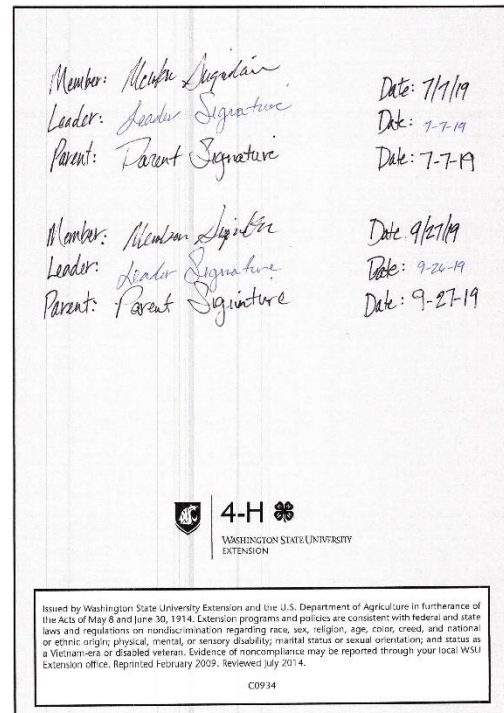 Member: Member Signature Date: 7/7/19
Leader: Leader Signature Date: 7-7-19
Parent: Parent Signature Date: 7-7-19
Member: Member Signature Date: 9/27/19
Leader: Leader Signature Date: 9-26-19
Parent: Parent Signature Date: 9-27-19
4-H
WASHINGTON STATE UNIVERSITY
EXTENSION
Issued by Washington State University Extension and the U.S. Department of Agriculture in furtherance of
the Acts of May 8 and June 30, 1914. Extension programs and policies are consistent with federal and state
laws and regulations on nondiscrimination regarding race, sex, religion, age, color, creed, and national
or ethnic origin; physical, mental, or sensory disability; marital status or sexual orientation; and status as
a Vietnam-era or disabled veteran. Evidence of noncompliance may be reported through your local WSU
Extension office. Reprinted February 2009. Reviewed July 2014.
C0934